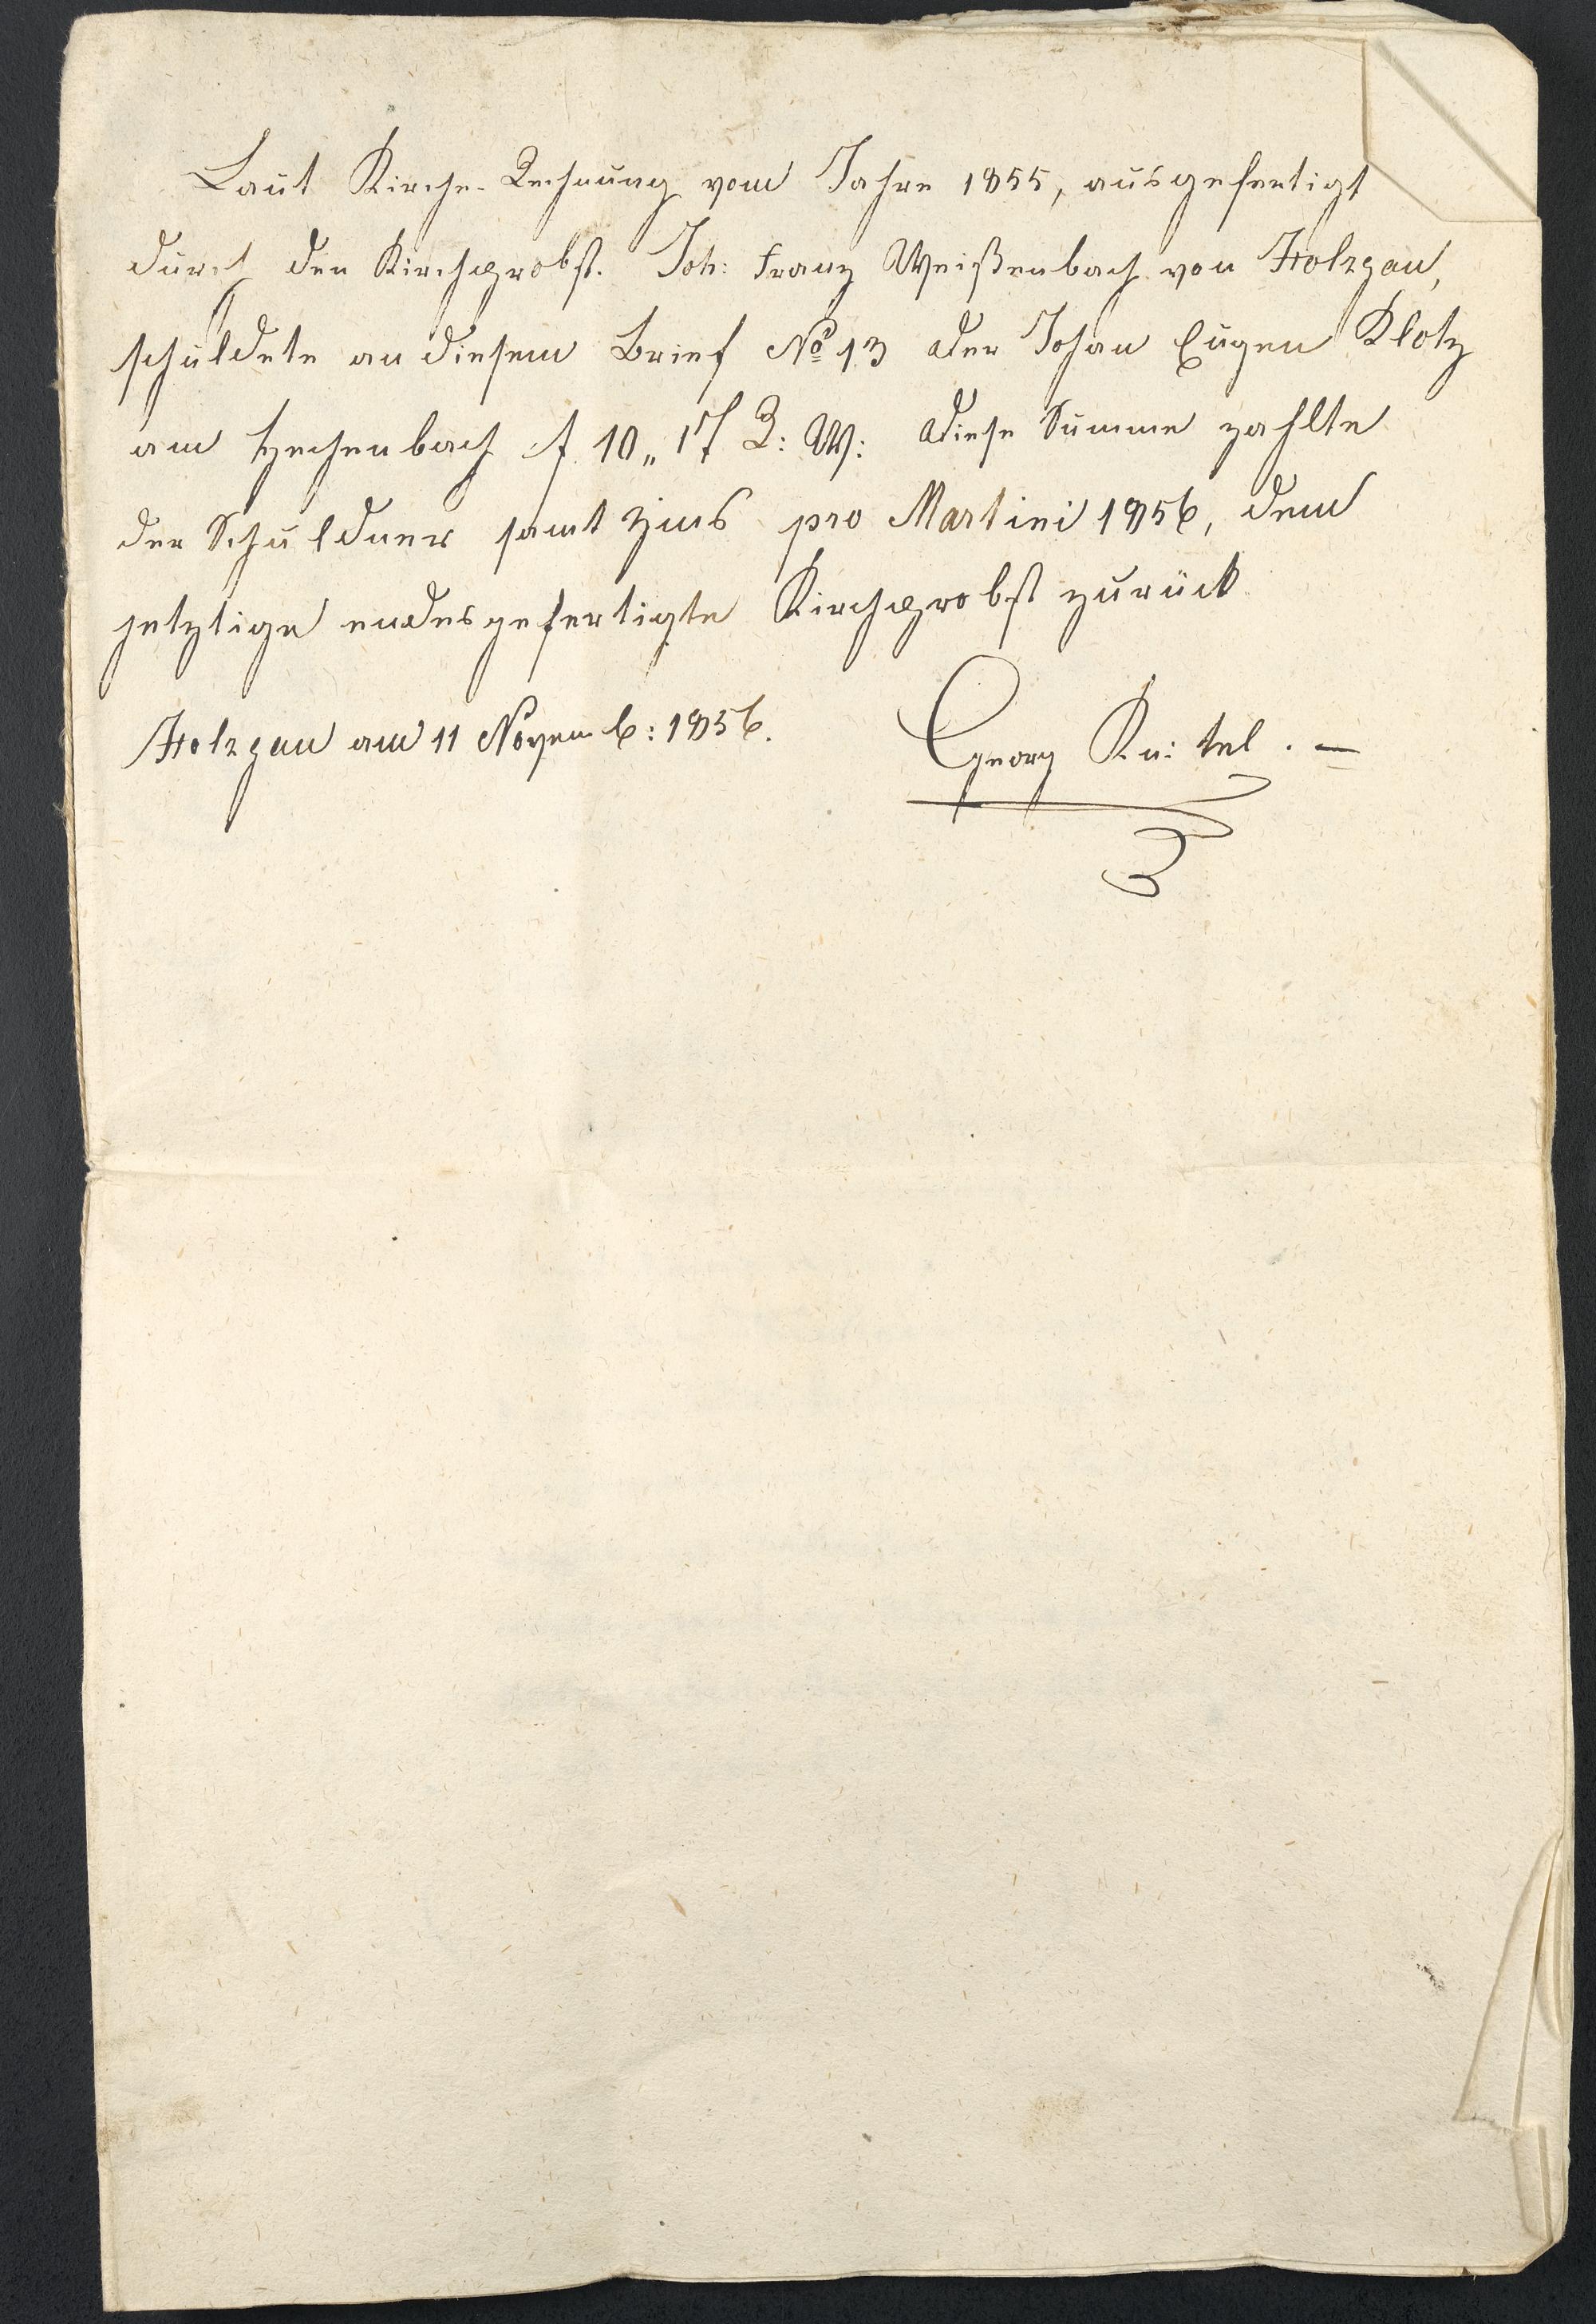 Laut Kirche-Rechnung vom Jahre 1855, ausgefertigt
durch den Kirchprobst. Joh: Franz Weißenbach von Holzgau,
schuldete an diesem Brief No 13 der Johan Eugen Klotz
am f 10„ 17 R: W: diese Summe zahlte
der Schuldner samt Zins pro Martini 1856, dem
jetztige endesgefertigte Kirchprobst zurück
Holzgau am 11 Novemb: 1856.
Georg Knitel . —